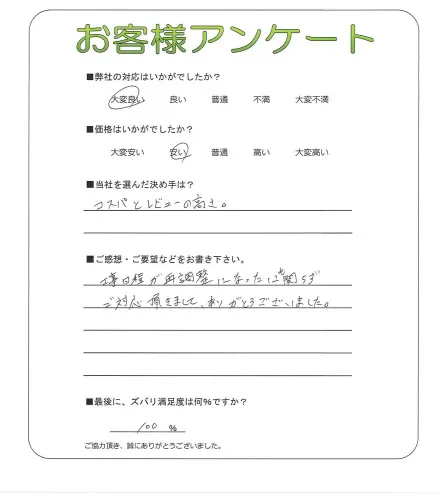 お客様アンケート
■弊社の対応はいかがでしたか？
大変良い 良い 普通 不満 大変不満
■価格はいかがでしたか？
大変安い 安い 普通 高い 大変高い
■当社を選んだ決め手は？
コスパとレビューの高さ。
■ご感想・ご要望などをお書き下さい。
日程が再調整になったにも関らず
ご対応頂きまして、ありがとうございました。
■最後に、ズバリ満足度は何％ですか？
100 ％
ご協力頂き、誠にありがとうございました。